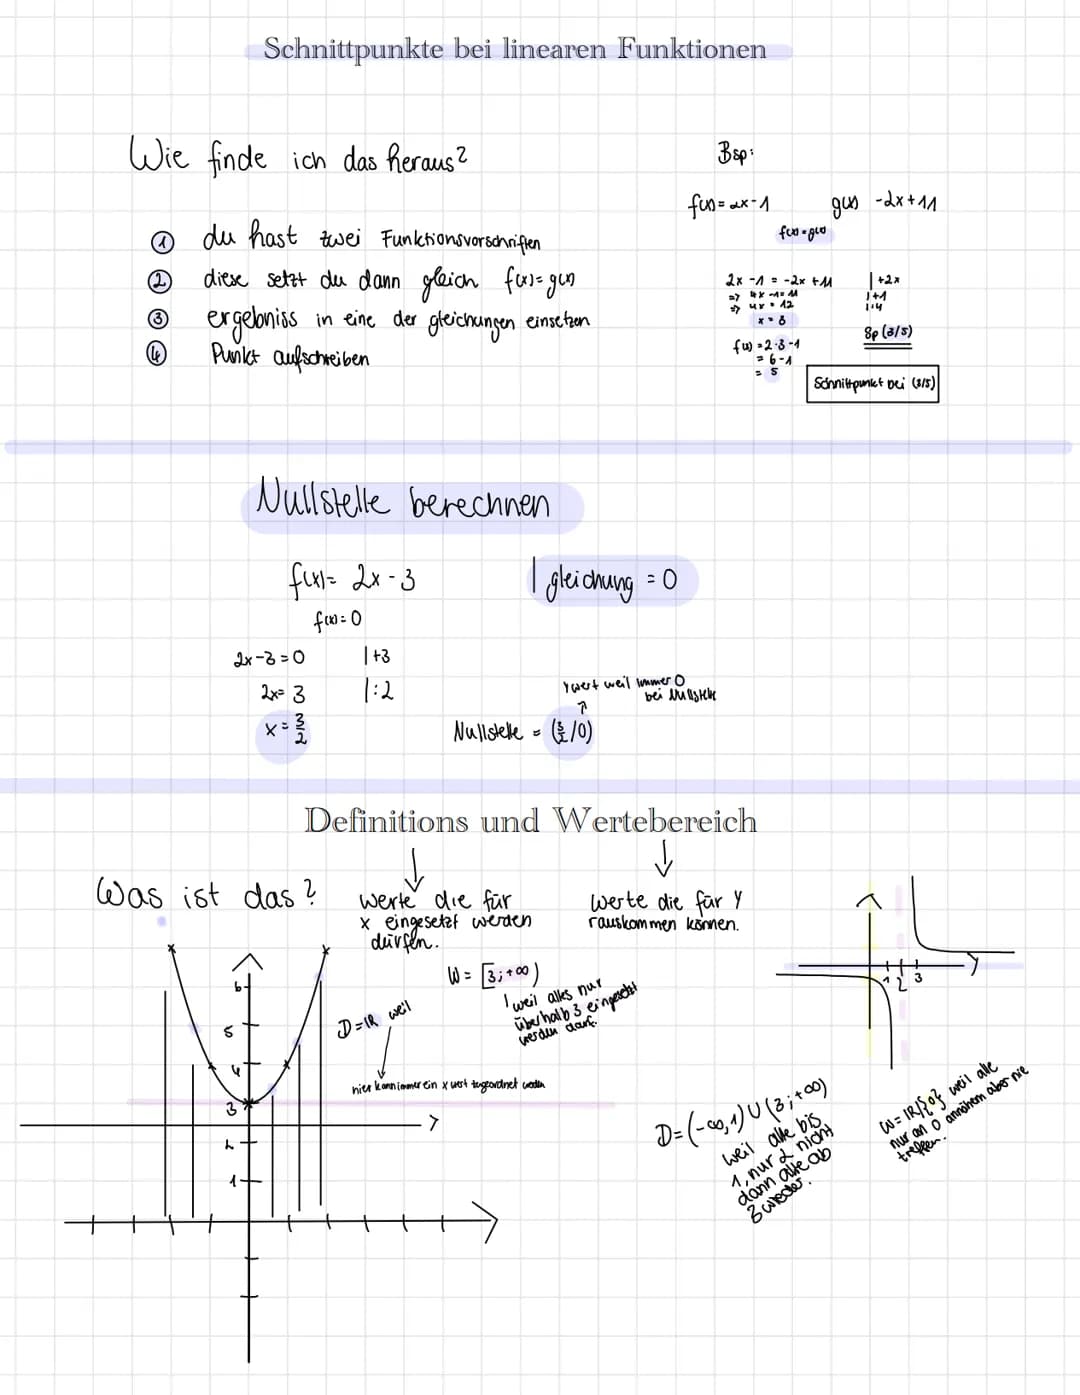 Schnittpunkte bei linearen Funktionen
Wie finde ich das heraus?
① du hast zwei Funktionsvorschriften
② diese setzt du dann gleich f(x)=g(x)
③ ergebniss in eine der gleichungen einsetzen
④ Punkt aufschreiben
Bsp:
f(x)=2x-1 g(x) -2x+11
f(x)=g(x)
2x -1 = -2x +11 |+2x
=> 4x -1= 11 |+1
=> 4x = 12 |:4
x = 3
Sp (3/5)
f(x) =2·3-1
= 6-1
= 5
Schnittpunkt bei (3/5)
Nullstelle berechnen
f(x)= 2x-3 | gleichung = 0
f(x)=0
2x-3=0 |+3
2x= 3 |:2
x = 3/2
Y wert weil immer 0
bei Nullstelle
Nullstelle = (3/2 /0)
Definitions und Wertebereich
Was ist das?
werte die für
x eingesetzt werden
dürfen.
Werte die für Y
rauskommen können.
W = [3;+∞)
weil alles nur
überhalb 3 eingesetzt
werden darf.
D=IR weil
hier kann immer ein x wert zugeordnet werden
6
5
4
3
2
1
1 2 3
D=(-∞,1)∪(3;+∞)
weil alle bis
1, nur 2 nicht
dann alle ab
3 wieder.
W=IR/{0} weil alle
nur an 0 annähern aber nie
treffen.